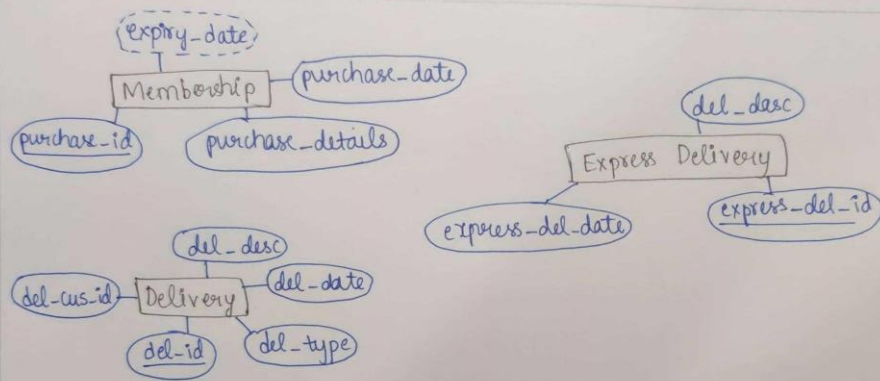 expiry_date
Membership
purchase_date
purchase_id
purchase_details
del_dasc
Express Delivery
express-del-date
express-del-id
del_desc
del-cus-id
Delivery
del-date
del-id
del-type